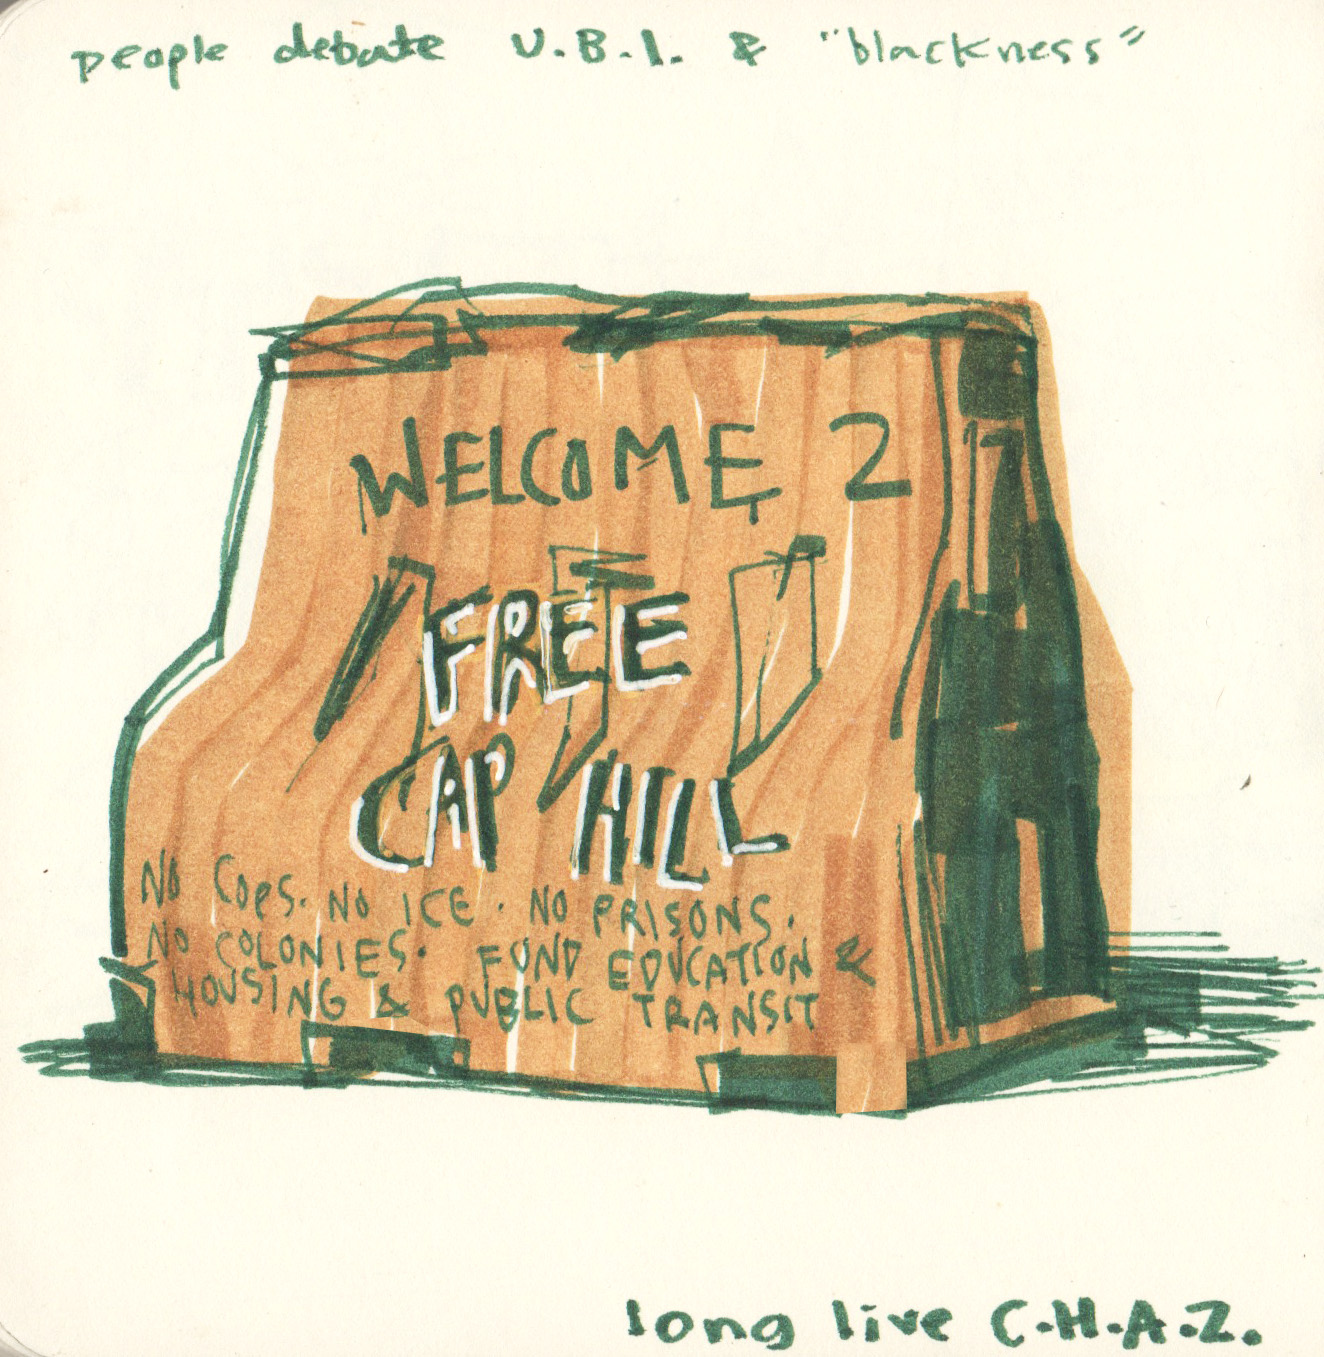 people debate U.B.I. & "blackness"
WELCOME 2
FREE
CAP HILL
NO COPS. NO ICE. NO PRISONS.
NO COLONIES. FUND EDUCATION &
HOUSING & PUBLIC TRANSIT
long live C.H.A.Z.